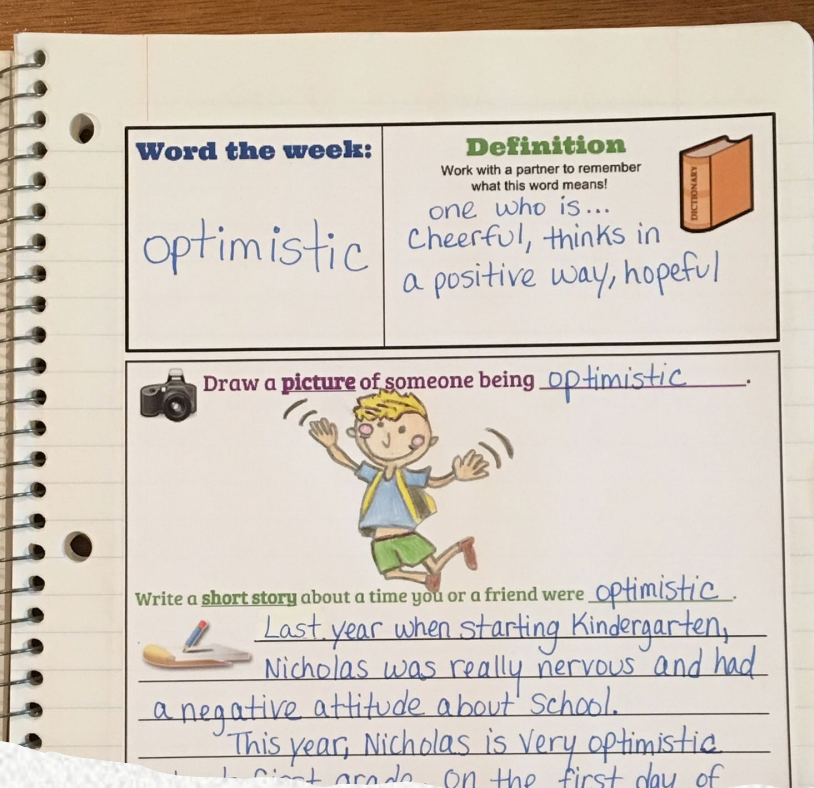 Word the week:
optimistic
Definition
Work with a partner to remember
what this word means!
DICTIONARY
one who is...
Cheerful, thinks in
a positive way, hopeful
Draw a picture of someone being optimistic.
Write a short story about a time you or a friend were optimistic.
Last year when starting Kindergarten,
Nicholas was really nervous and had
a negative attitude about School.
This year, Nicholas is very optimistic
first grade. On the first day of